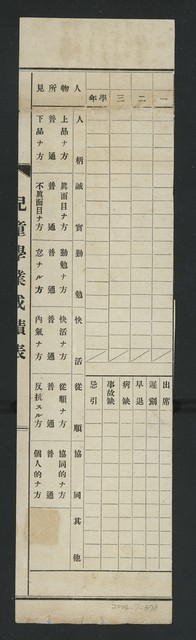 兒童學業成績表
人物所見
人柄
上品ナ方
普通
下品ナ方
誠實
眞面目ナ方
普通
不眞面目ナ方
勤勉
勤勉ナ方
普通
怠ナル方
快活
快活ナ方
普通
內氣ナ方
從順
從順ナ方
普通
反抗スル方
協同
協同的ナ方
普通
個人的ナ方
其他
學年
一
二
三
出席
遲刻
早退
病缺
事故缺
忌引